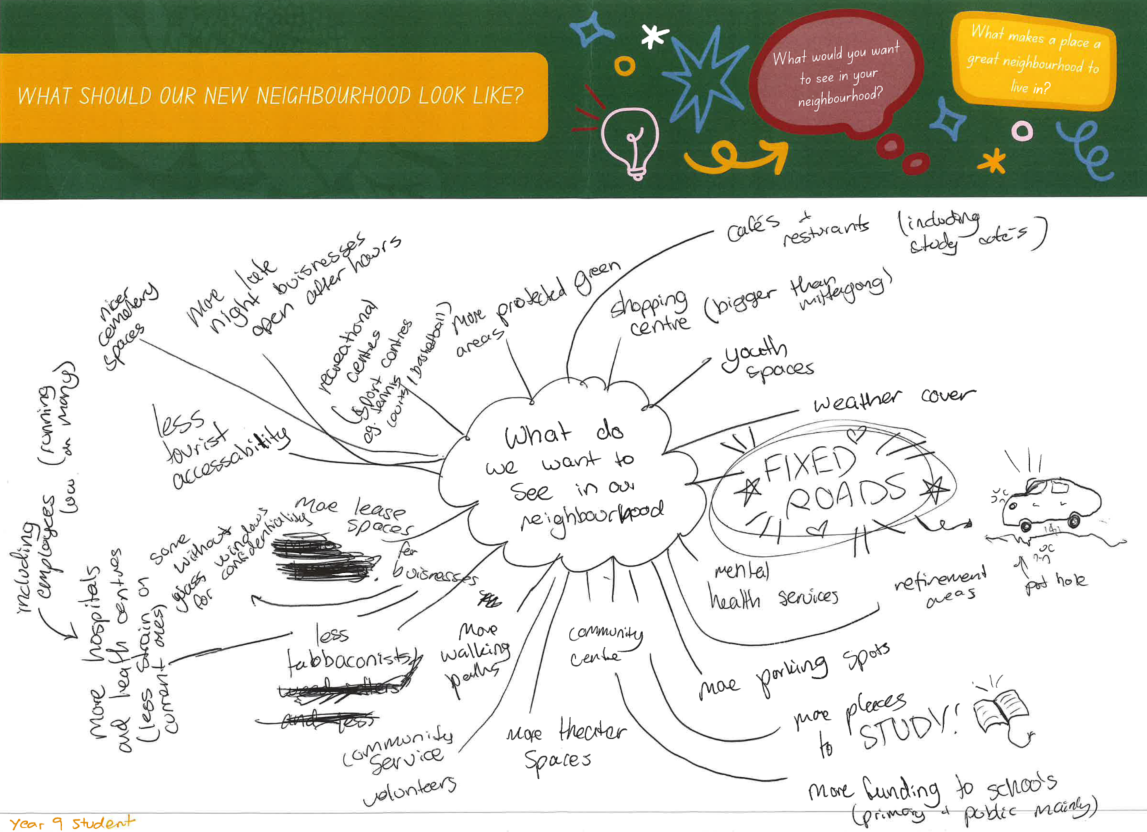 WHAT SHOULD OUR NEW NEIGHBOURHOOD LOOK LIKE?
What would you want
to see in your
neighbourhood?
What makes a place a
great neighbourhood to
live in?
What do
we want to
see in our
neighbourhood
cafés +
resturants (including
study cafés)
shopping
centre (bigger than
mittagong)
youth
spaces
weather cover
FIXED
ROADS
pot hole
mental
health services
refirement
areas
more parking spots
more places
to STUDY!
more funding to schools
(primary + public mainly)
community
centre
more theater
spaces
community
service
volunteers
more
walking
paths
less
tabbaconists
more lease
spaces
for
buisnesses
some
without windows
glass confidentiality
for
more hospitals
and health centres
(less strain on
current ones)
including
employees (running
low on many)
less
tourist
accessability
nicer
cemetery
spaces
more late
night buisnesses
open after hours
recreational
centres
(sport centres
eg. tennis
courts / basketball)
more protected green
areas
Year 9 Student